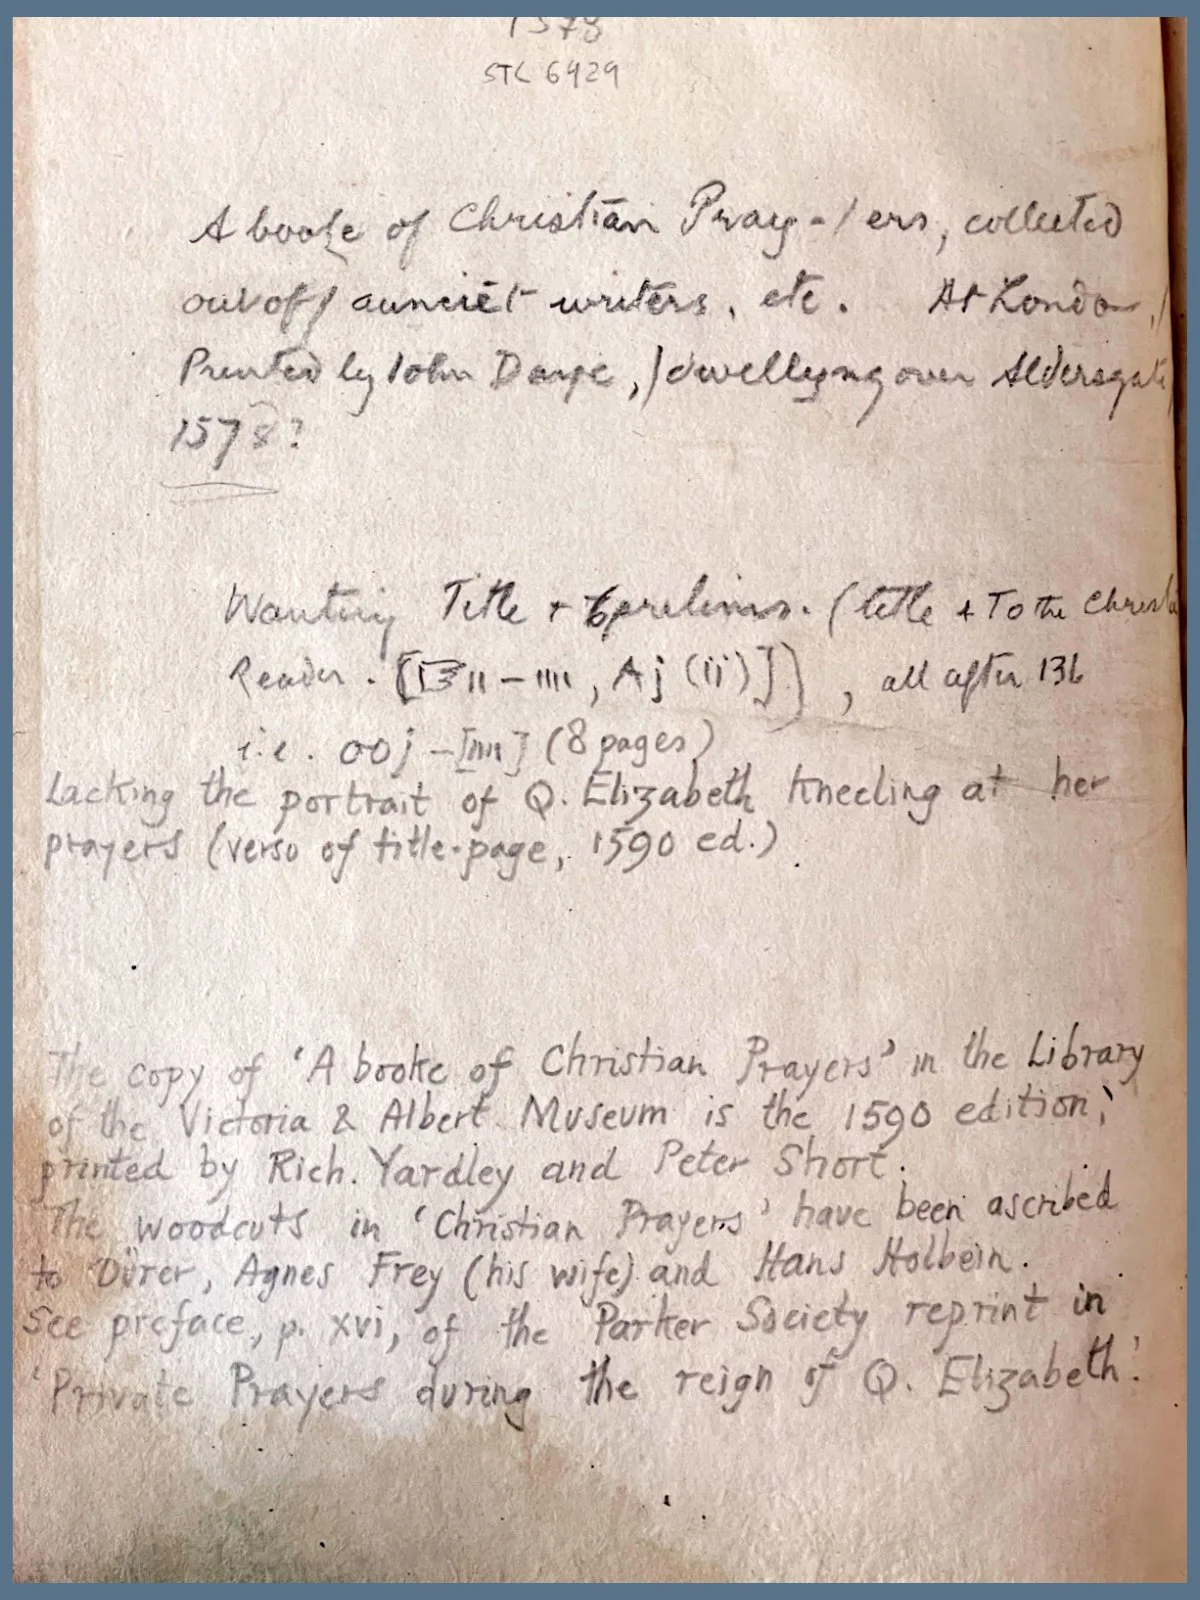 1578
STC 6429
A booke of Christian Pray-/ers, collected
out of/ aunciēt writers, etc. At London,/
Printed by Iohn Daye,/dwellyng over Aldersgate
1578?
Wanting Title + 6 prelims. (title + To the Christian
Reader. [☞ii – iiii, A j (ii)]), all after 136
i.e. OO j – [iiii] (8 pages)
Lacking the portrait of Q. Elizabeth kneeling at her
prayers (verso of title-page, 1590 ed.)
The copy of 'A booke of Christian Prayers' in the Library
of the Victoria & Albert Museum is the 1590 edition,
printed by Rich. Yardley and Peter Short.
The woodcuts in 'Christian Prayers' have been ascribed
to Dürer, Agnes Frey (his wife) and Hans Holbein.
See preface, p. xvi, of the Parker Society reprint in
'Private Prayers during the reign of Q. Elizabeth'.